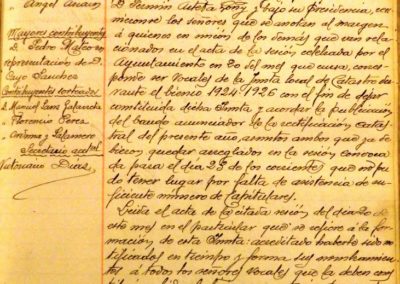 Angel Anain
Mayores contribuyentes
D. Pedro Mateo en
representación de D.
Cayo Sanchez
Contribuyentes sorteados
D. Manuel Sanz
Florencio Perez
Secretario actal
Victoriano Diaz
D. Fermin y bajo su Presidencia, en
los señores que se anotan al margen
á quienes en unión de los demás que van re-
lacionados en el acta de la sesión celebrada por el
Ayuntamiento en 20 del mes que cursa, corres-
ponde ser Vocales de la Junta local de Catastro du-
rante el bienio 1924-1926 con el fin de dejar
constituida dicha Junta y acordar la publicación
del bando anunciador de la rectificación catas-
tral del presente año, asuntos ambos que ya de-
bieron quedar arreglados en la sesión convoca-
da para el día 25 de los corrientes que no pu-
do tener lugar por falta de asistencia de su-
ficiente número de Capitulares.
Leida el acta de la citada sesión del día 20 de
este mes en el particular que se refiere á la for-
mación de esta Junta: acreditado haberse sido no-
tificados en tiempo y forma sus nombramien-
tos á todos los señores Vocales que la deben cons-